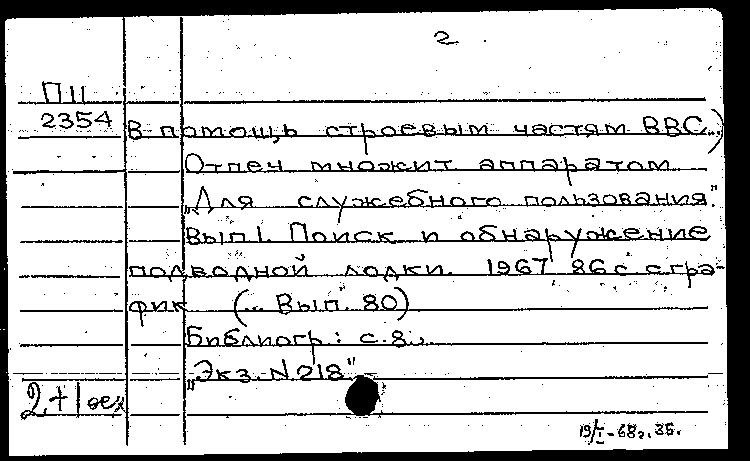 2.
П11
2354
В помощь строевым частям ВВС...)
Отпеч множит аппаратом
„Для служебного пользования."
Вып1. Поиск и обнаружение
подводной лодки. 1967 86с с гра-
фик (... Вып. 80)
Библиогр: с.8.
„Экз. N 218"
2+1
19/I-68г.